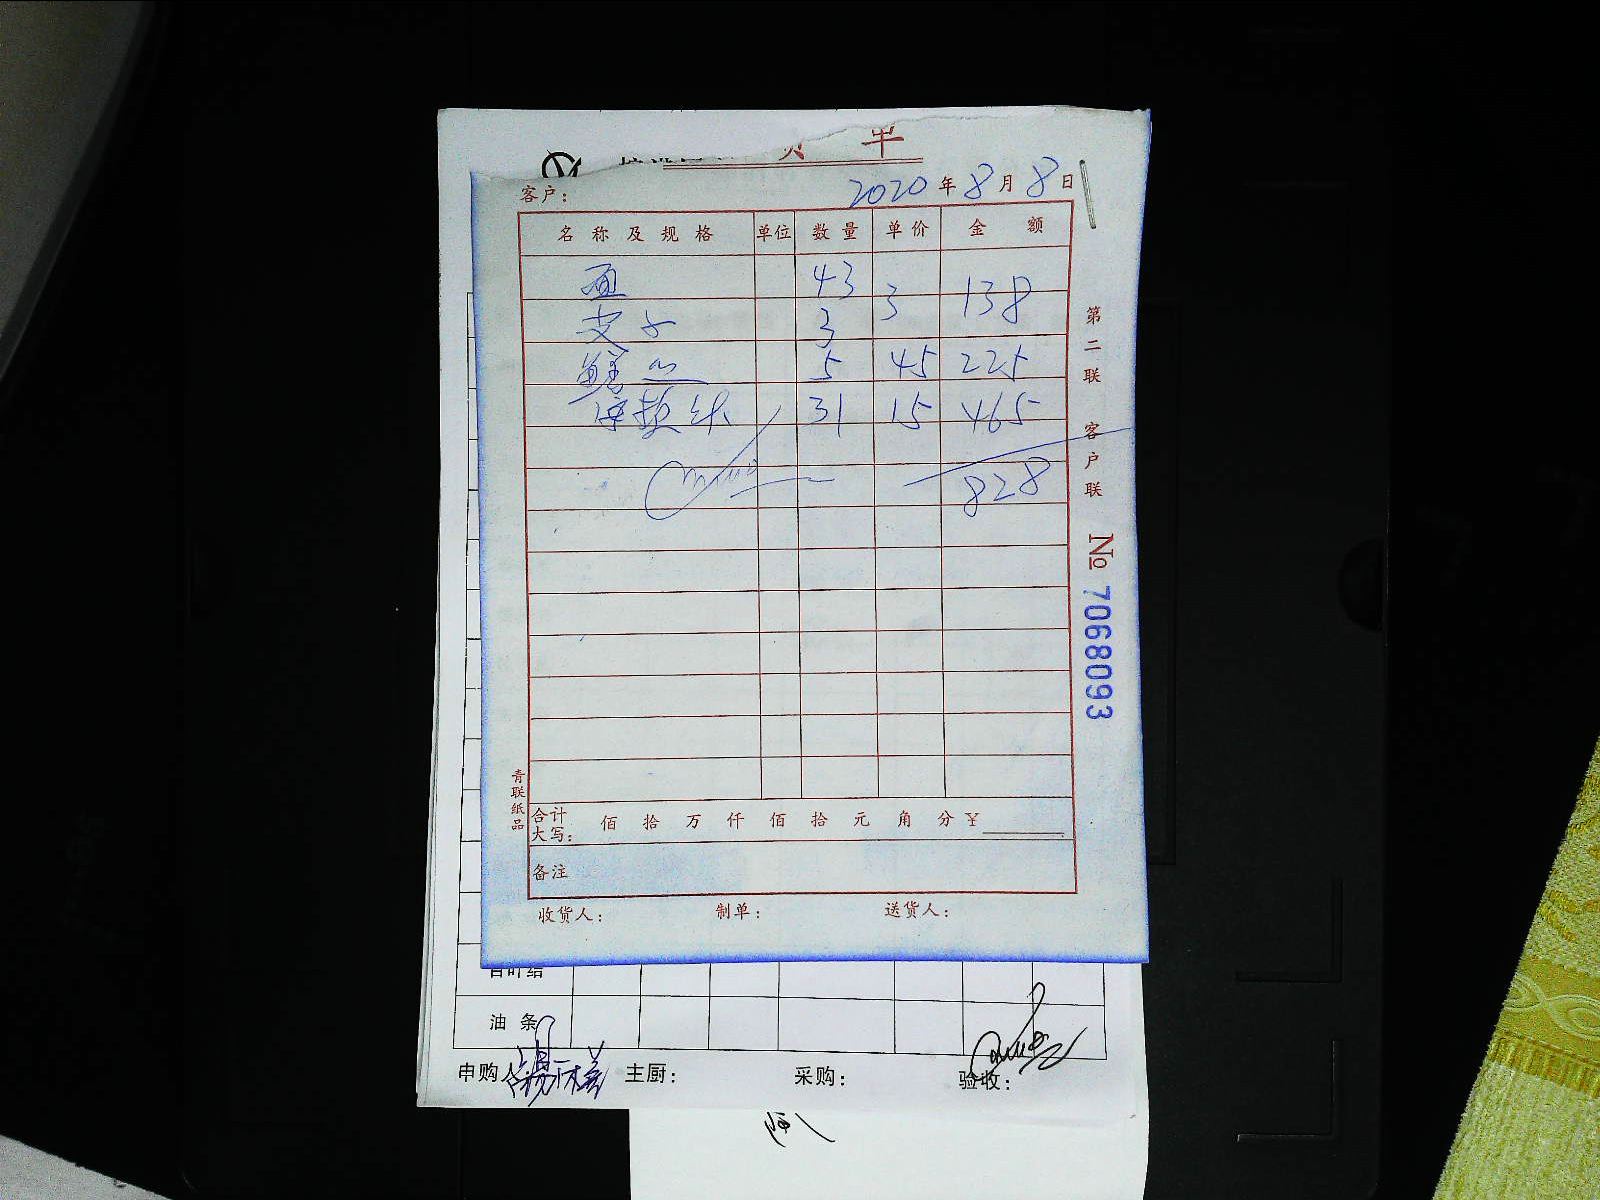 货 单
客户: 2020 年 8 月 8 日
名 称 及 规 格 单位 数 量 单 价 金 额
面 43 3 138
皮子 3
鲜 5 45 225
31 15 465
828
第二联 客户联
№ 7068093
青联纸品
合计大写: 佰 拾 万 仟 佰 拾 元 角 分 ¥
备注
收货人: 制单: 送货人:
百叶结
油 条
申购人 主厨: 采购: 验收: